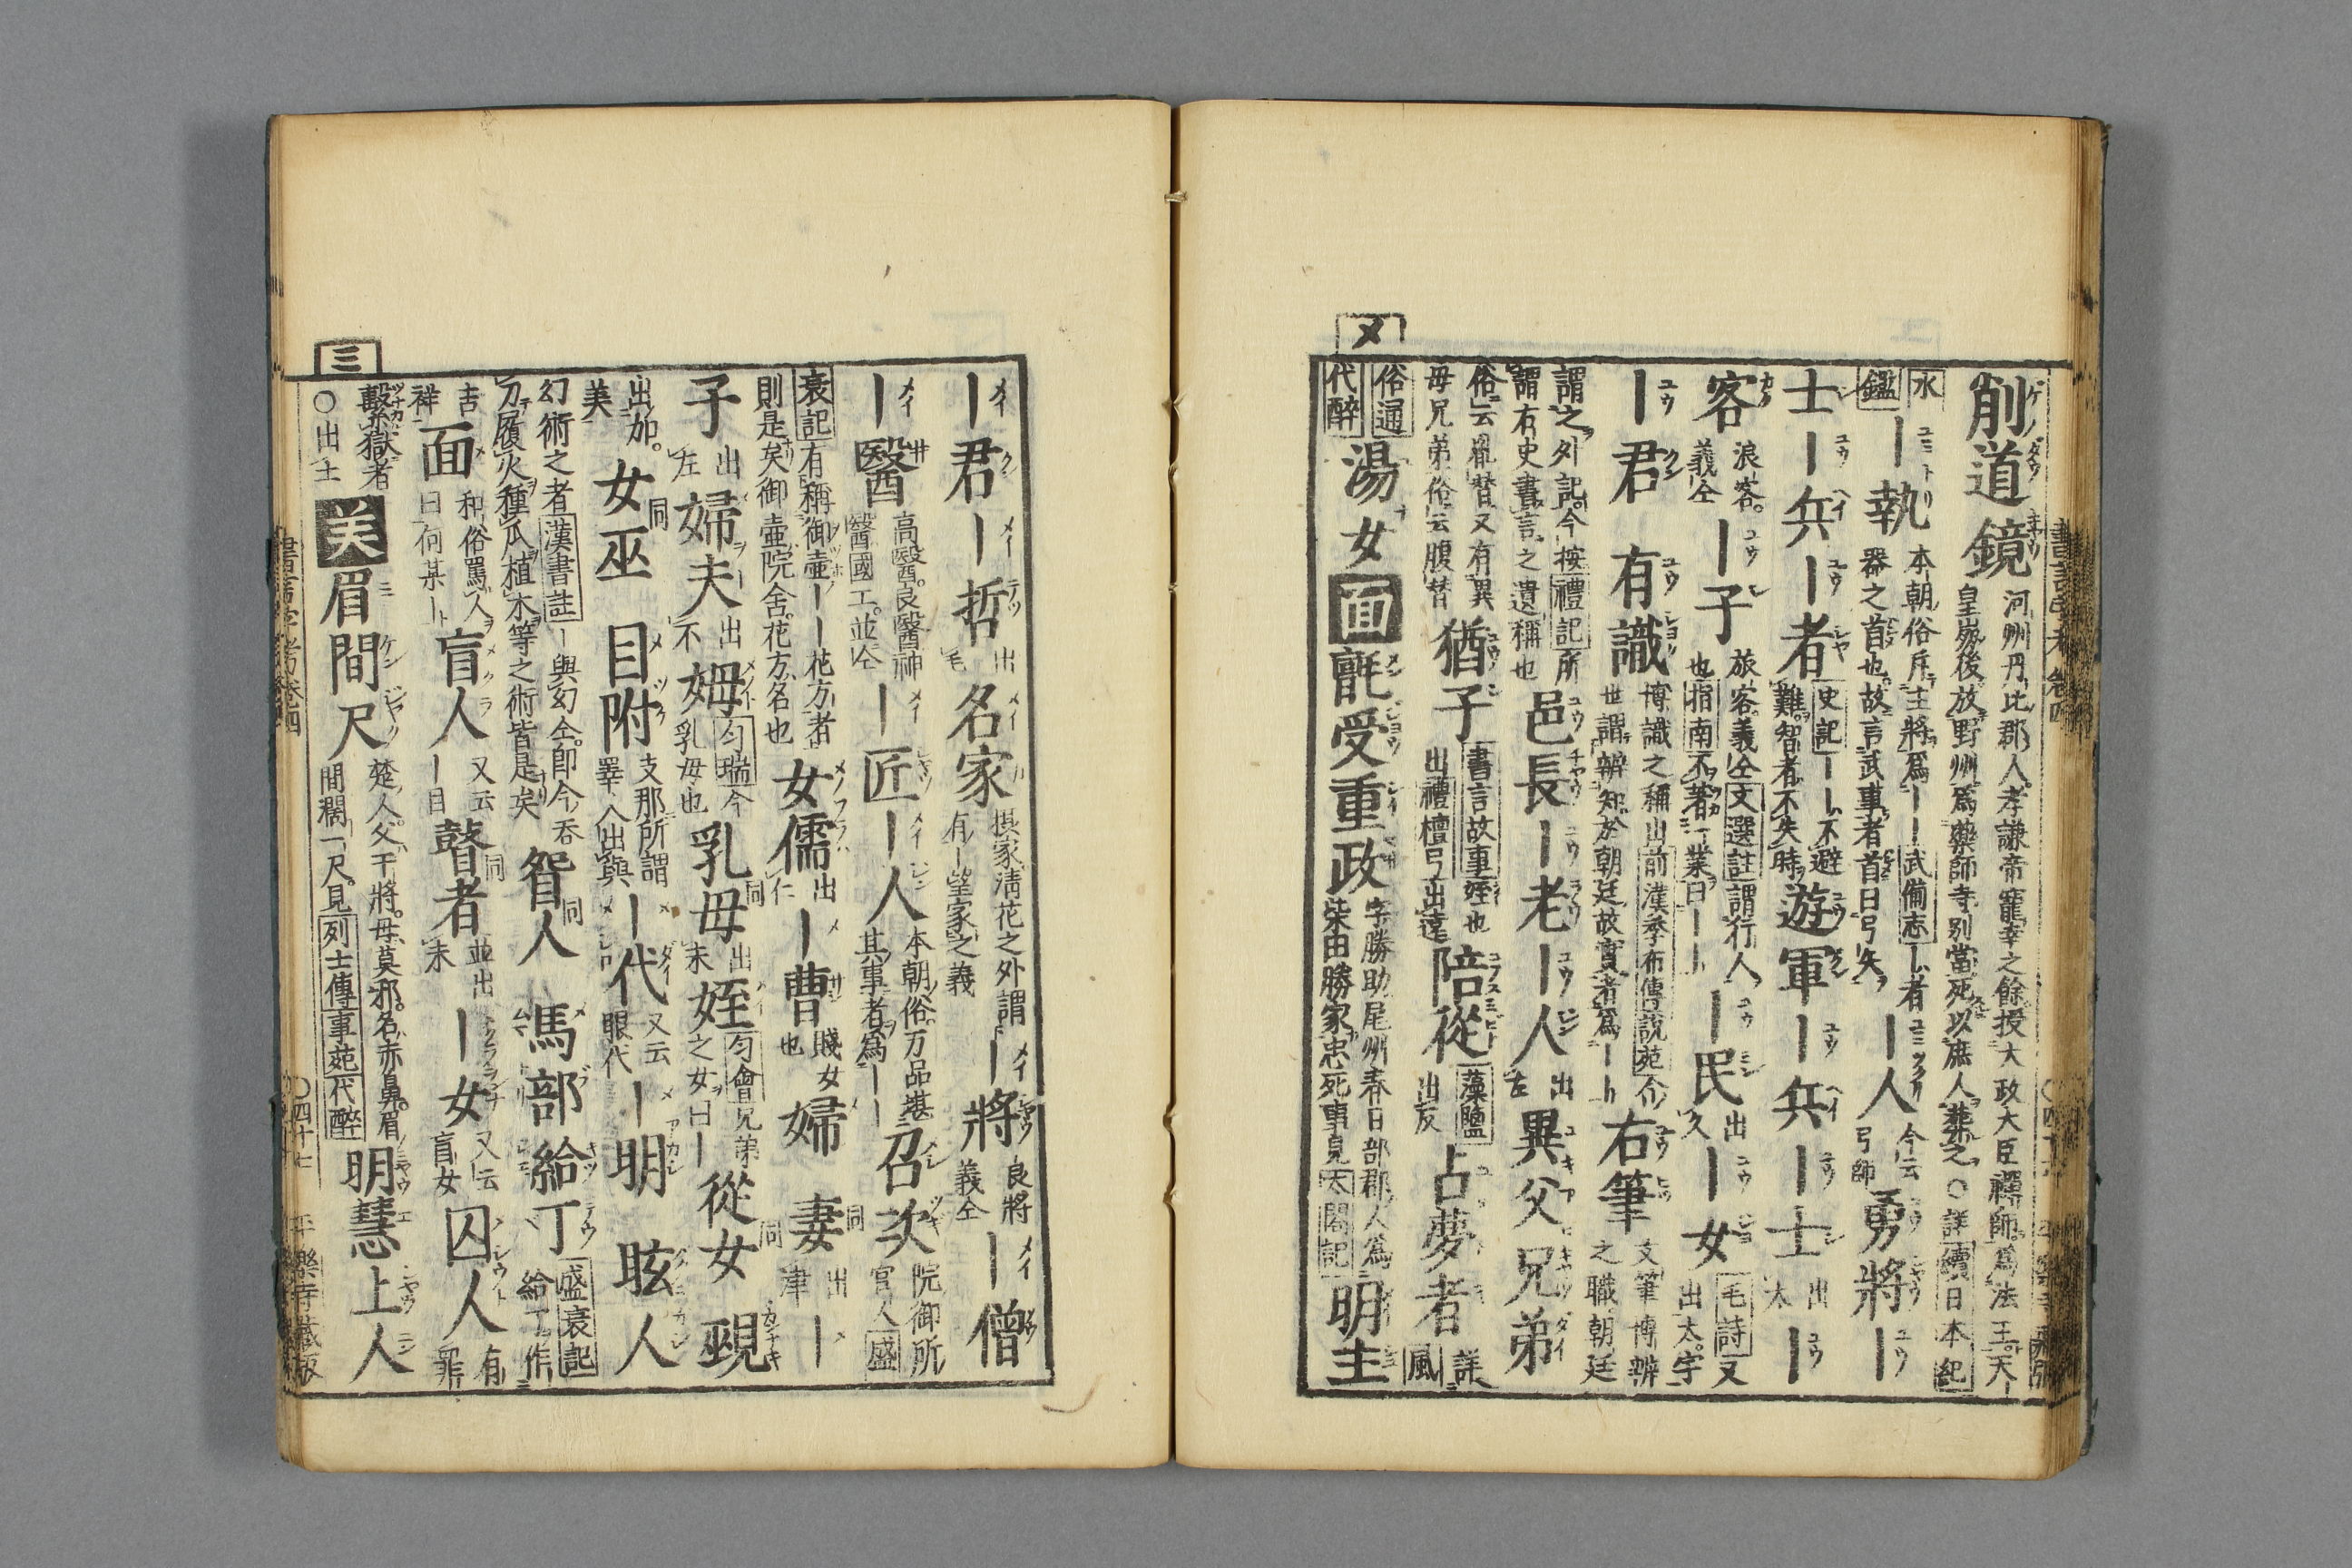 削道鏡 河州丹比郡人孝謙帝寵幸之餘授大政大臣禪師為法王天
皇崩後放野州為藥師寺別當死以庶人葬之○詳續日本紀
水鑑 ー執 本朝俗斥主將為ーー武備志ー者
器之首也故言武事者首曰弓矢 ー人 今云弓師 勇將 ー
士 ー兵 ー者 史記ーー不避難智者不失時 遊軍 ー兵 ー士 出太 ー
客 浪客義仝 ー子 旅客義仝文選註謂行人也指南不著一業曰ーー ー民 出久 ー女 毛詩又出太字
ー君 有識 博識之稱出前漢季布傳說苑
世謂辨知於朝廷故實者為ーー 右筆 文筆博辨之職朝廷
謂之外記今按禮記所
謂右史書言之遺稱也 邑長 ー老 ー人 出左 異父兄弟
俗云胤替又有異
母兄弟俗云腹替 猶子 書言故事姪也出禮檀弓出遠 陪從 藻鹽出反 占夢者 詳風
俗通
代醉 湯女 面 毳受重政 字勝助尾州春日部郡人為
柴田勝家忠死事見太閤記 明主
メ
ー君 ー哲 出毛 名家 摂家清花之外謂
有ー望家之義 ー將 良將義仝 ー僧
ー醫 高醫良醫神
醫國工並仝 ー匠 ー人 本朝俗万品堪
其事者為ーー 召次 院御所
官人盛
衰記有稱御壷ーー花方者
則是矣御壷院舍花方名也 女儒 出仁 ー曹 賤女也 婦 妻 同 出津 ー
子 出左 婦夫 出不 姆 匀瑞今乳母也 乳母 同 出未 姪 匀會兄弟之女曰ー 從女 同 覡
出加
美 女巫 同 目附 支那所謂
睪人出與 ー代 又云眼代 ー明 眩人
幻術之者漢書註ー與幻仝即今吞
刀履火種瓜植木等之術皆是矣 眢人 同 馬部給丁 盛衰記
給丁作
吉祥 面 和俗罵人曰何某ート 盲人 又云ー目 瞽者 同 並出未 ー女 又云盲女 囚人 有罪
繫獄者
○出士 美 眉間尺 楚人父干將母莫邪名赤鼻眉
間濶一尺見列士傳事苑代醉 明慧上人
三
書言字考卷四
○四十七
平樂寺藏版